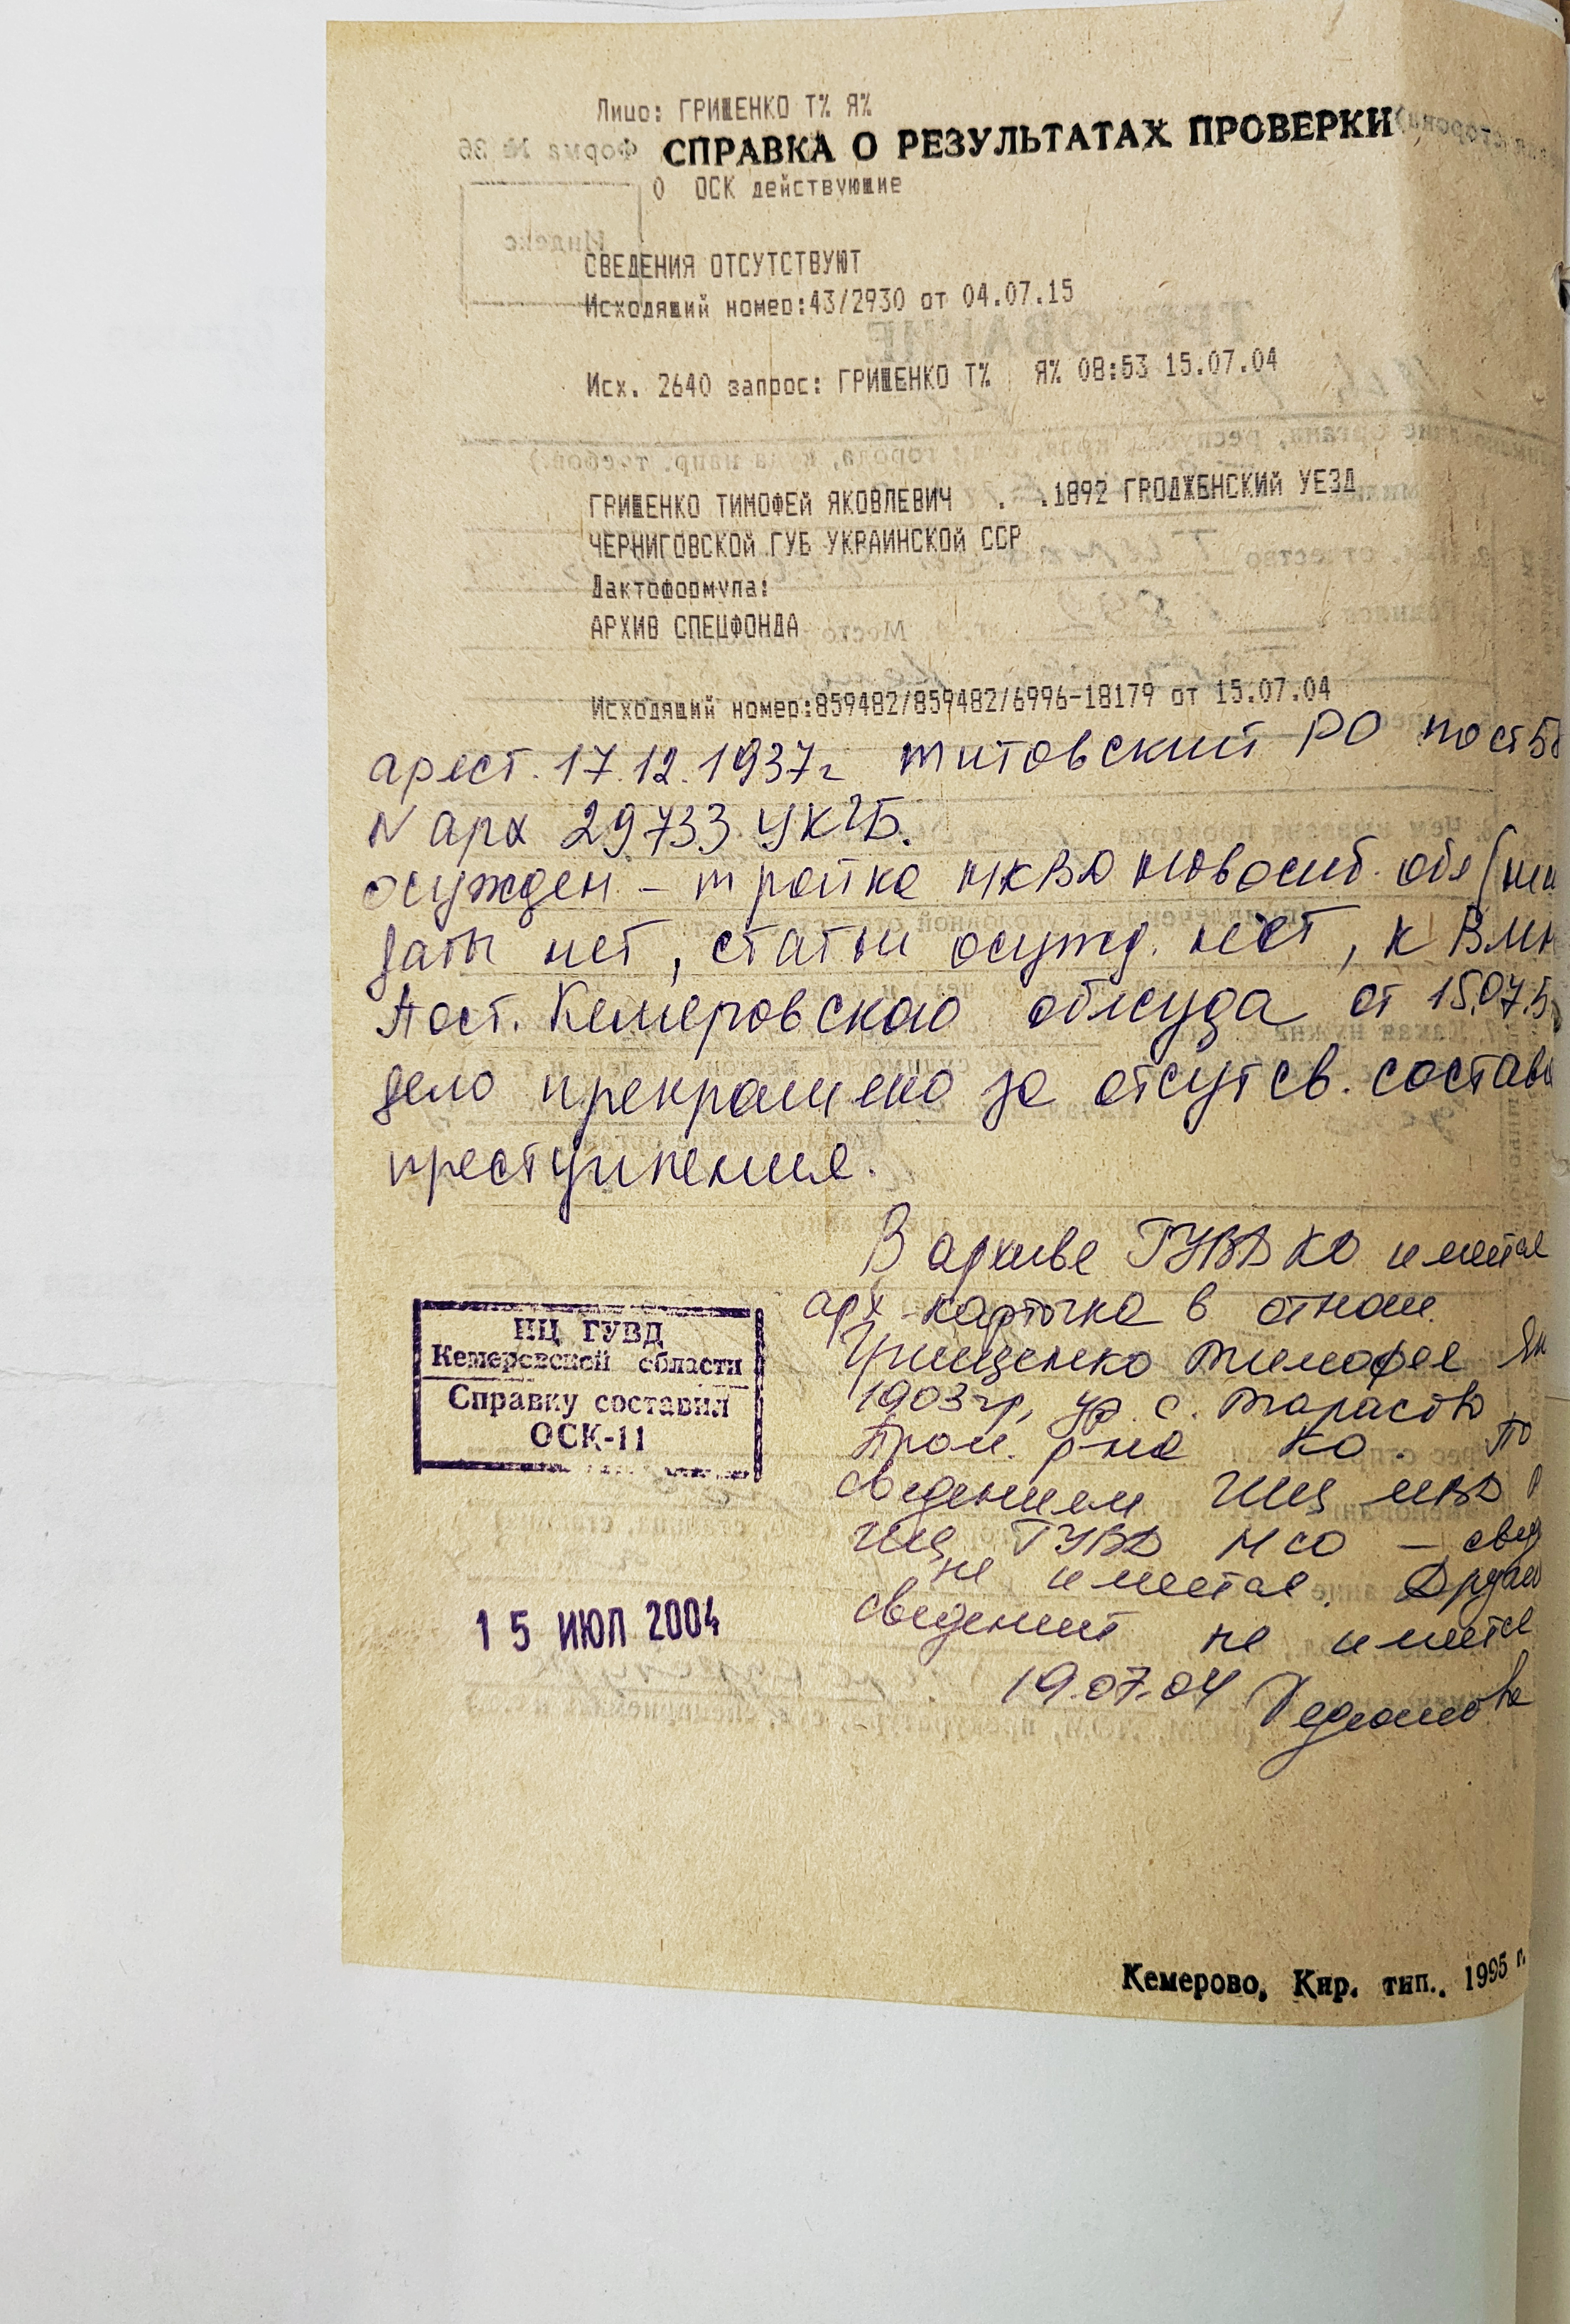 Лицо: ГРИЩЕНКО Т% Я%
СПРАВКА О РЕЗУЛЬТАТАХ ПРОВЕРКИ
О ОСК действующие
Форма № 36
Индекс
ТРЕБОВАНИЕ
СВЕДЕНИЯ ОТСУТСТВУЮТ
Исходящий номер:43/2930 от 04.07.15
Исх. 2640 запрос: ГРИЩЕНКО Т% Я% 08:53 15.07.04
ГРИЩЕНКО ТИМОФЕЙ ЯКОВЛЕВИЧ . .1892 ГРОДЖЕНСКИЙ УЕЗД
ЧЕРНИГОВСКОЙ ГУБ УКРАИНСКОЙ ССР
Дактоформула:
АРХИВ СПЕЦФОНДА
Исходящий номер:859482/859482/6996-18179 от 15.07.04
арест. 17.12.1937г Титовский РО по ст 58
N арх 29733 УКГБ.
осужден - тройка НКВД Новосиб. обл
даты нет, статьи осужд. нет, к ВМН
Пост. Кемеровского облсуда от 15.07.5
дело прекращено за отсутсв. состава
преступления.
В архиве ГУВД КО имеется
арх карточка в отнош.
Грищенко Тимофея Як
1903 гр, ур. с. Тарасово
Пром. р-на КО. По
сведениям ГИЦ МВД
ИЦ ГУВД НСО - свед
не имеется. Других
сведений не имеется
19.07.04
ИЦ ГУВД
Кемеровской области
Справку составил
ОСК-11
15 ИЮЛ 2004
Кемерово, Кир. тип.. 1995 г.